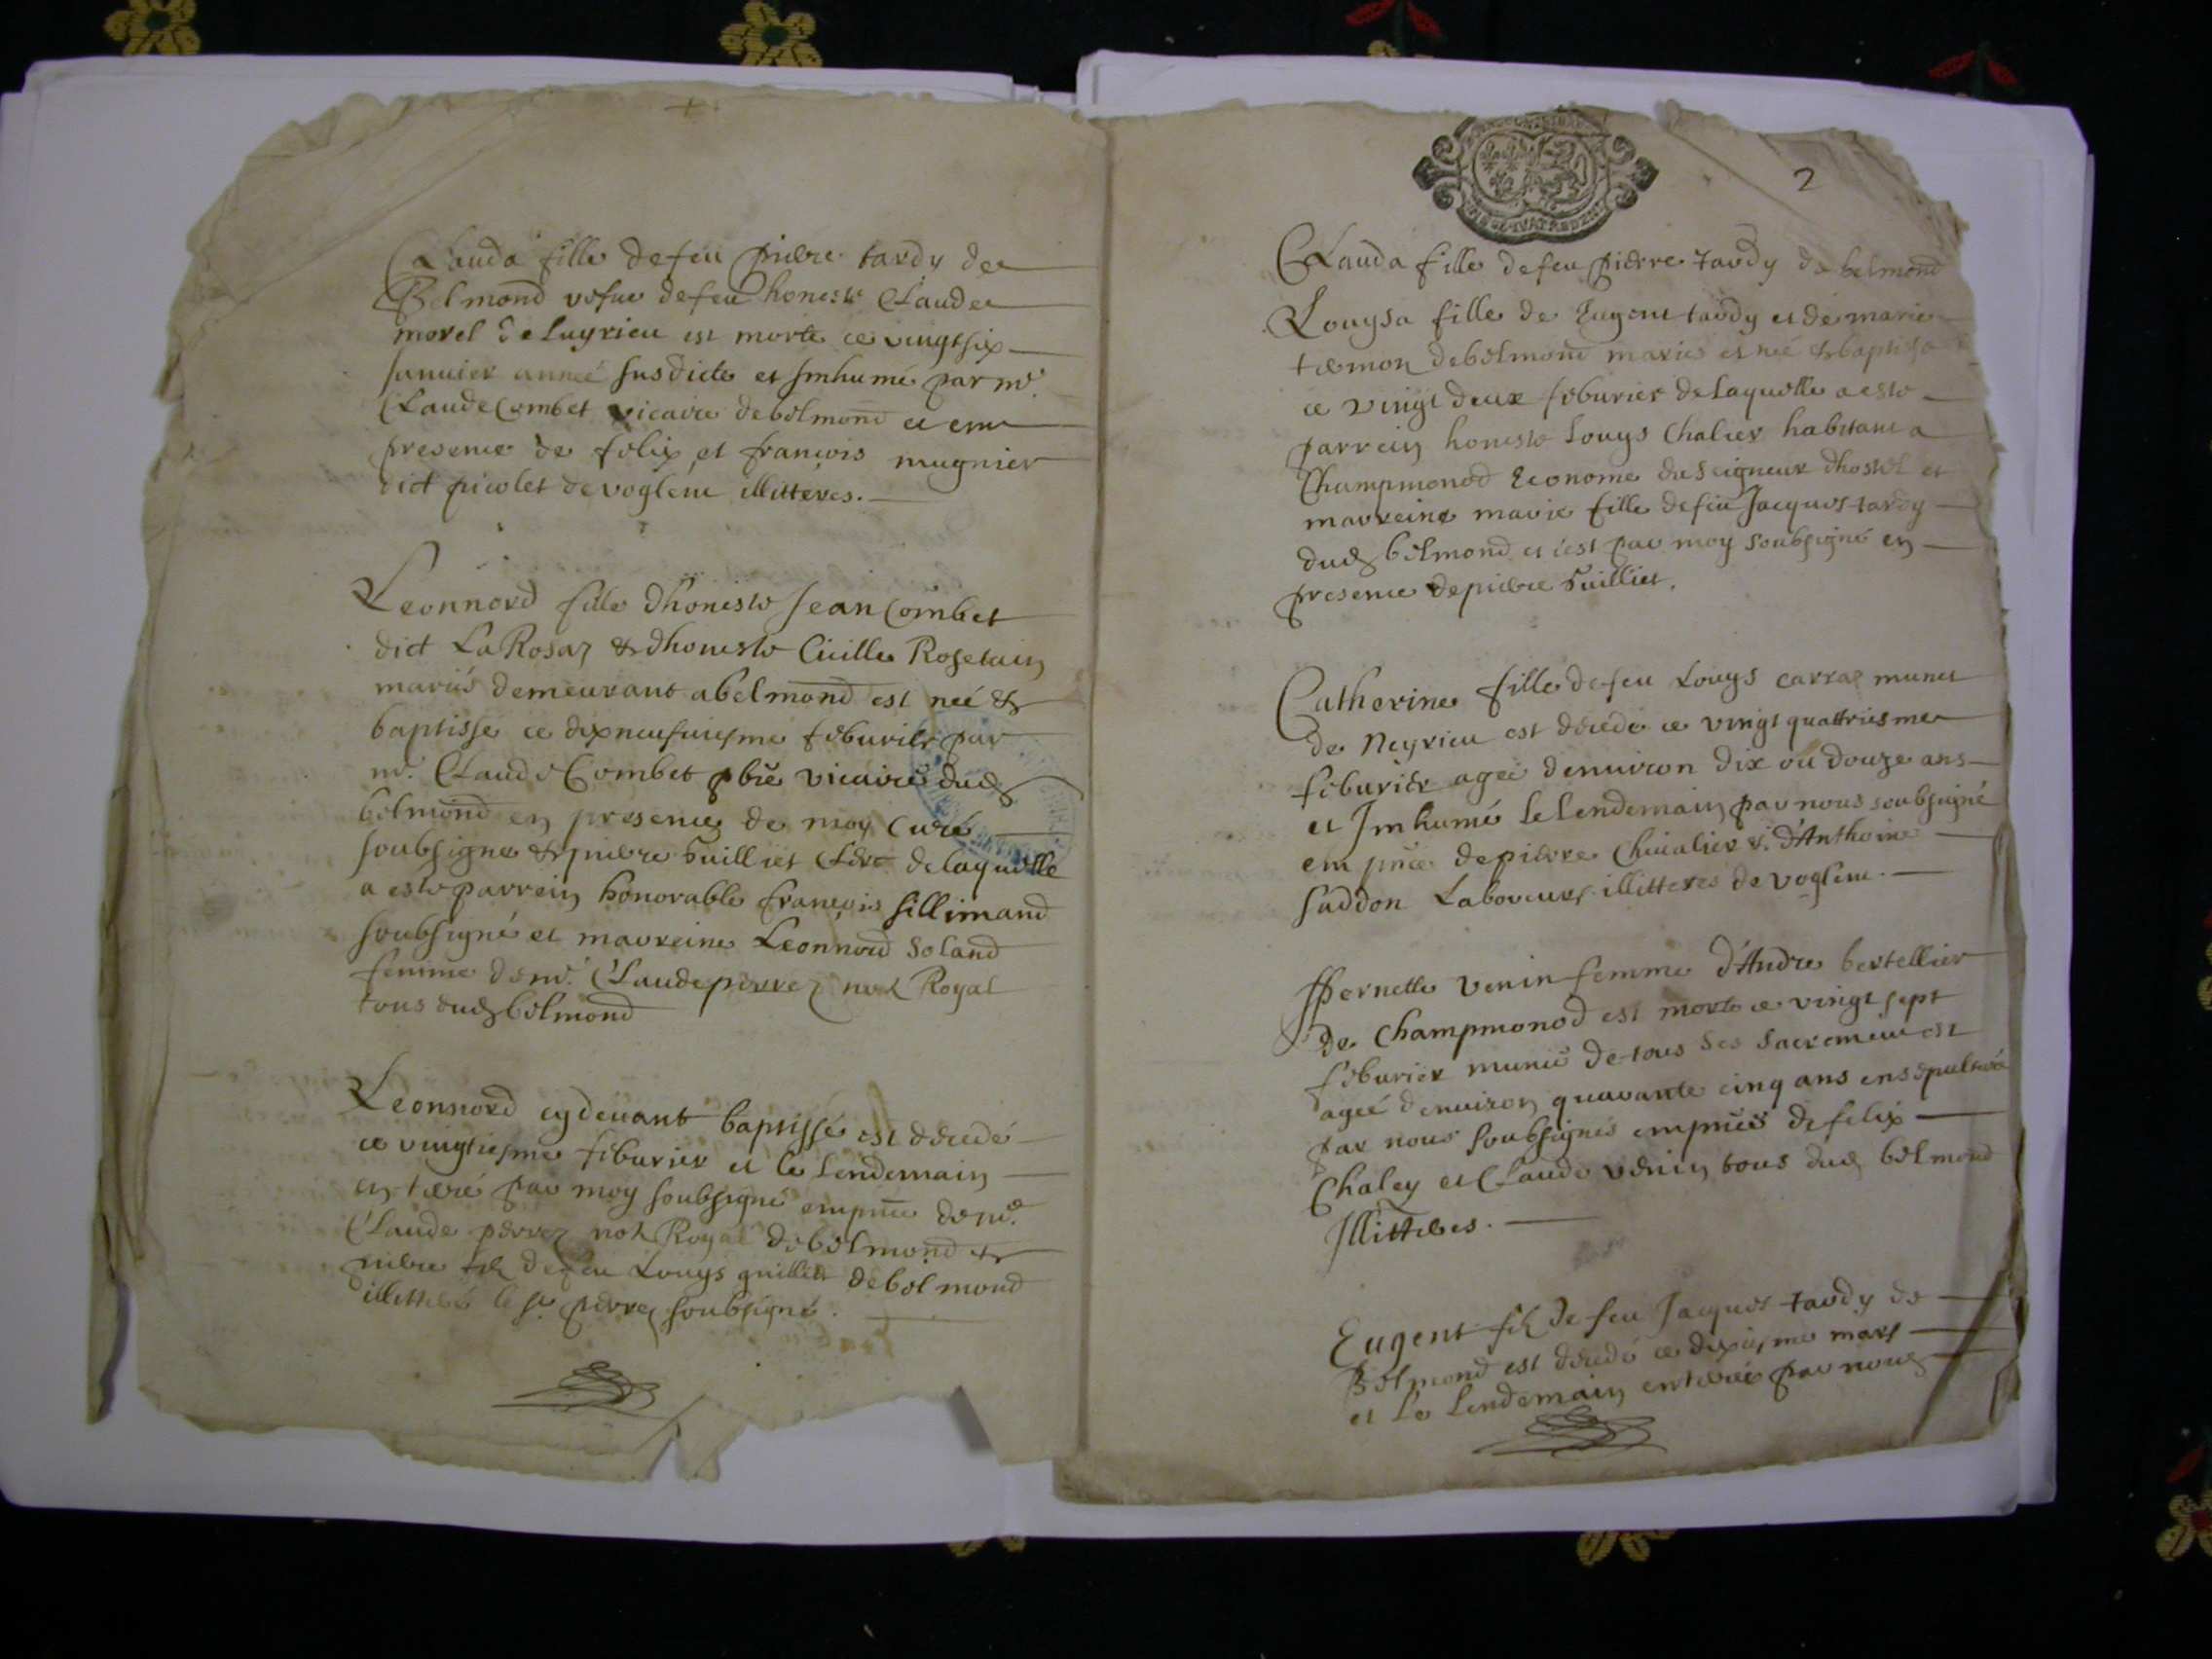 Clauda fille defeu pierre tardy de
Belmond vefue defeu honeste Claude
morel de Luyrieu est morte ce vingtsix
januier anneé susdicte et Inhumé par mr.
Claude Combet vicaire debelmond et en
presence de felix et francois mugnier
dict picolet devoglene illitteres.
Leonnord fille dhoneste Jean Combet
dict LaRosaz & dhoneste Rosetain
mariés demeurant abelmond est neé &
baptissé ce dixneufuiesme feburier par
mr. Claude Combet pbre vicaire dud
belmond en presence de moy Curé
soubsigné & pierre huilliet Clerc delaquelle
a este parrein honorable francois sillimand
soubsigné et marreine Leonnord Soland
femme demr. Claude perrez Royal
tous dud belmond
Leonnord cydeuant baptissé est decedé
ce vingtiesme feburier et le lendemain
enterré par moy soubsigné en pnce demr.
Claude perrez not Royal debelmond &
pierre defeu Louys guillet debelmond
illitteré le sr. perrez soubsigné.
2
Clauda fille defeu pierre tardy de belmond
Louysa fille de Eugent tardy et de marie
temon debelmond mariés est neé & baptisse
ce vingt deux feburier delaquelle a este
parrein honeste Louys Chalier habitant a
Champmonod Econome du seigneur dhostel et
marreine marie fille defeu Jacques tardy
dud belmond et cest par moy soubsigné en
presence depierre huilliet.
Catherine fille defeu Louys carraz munet
de Neyrieu est decedé ce vingt quattriesme
feburier ageé denuiron dix ou douze ans
et Inhumé le lendemain par nous soubsigné
en pnce depierre Cheualier & d'Anthoine
suddon Laboureurs illitteres de voglene.
Pernette venin femme d'Andre bertellier
de Champmonod est morte ce vingt sept
feburier munie de tous ses sacrement
ageé denuiron quarante cinq ans ensepulturé
par nous soubsignés en pnces de felix
Chaley et Claude venin tous dud belmond
Illitteres.
Eugent filz de feu Jacques tardy de
Belmond est decedé ce dixiesme mars
et le lendemain enterré par nous